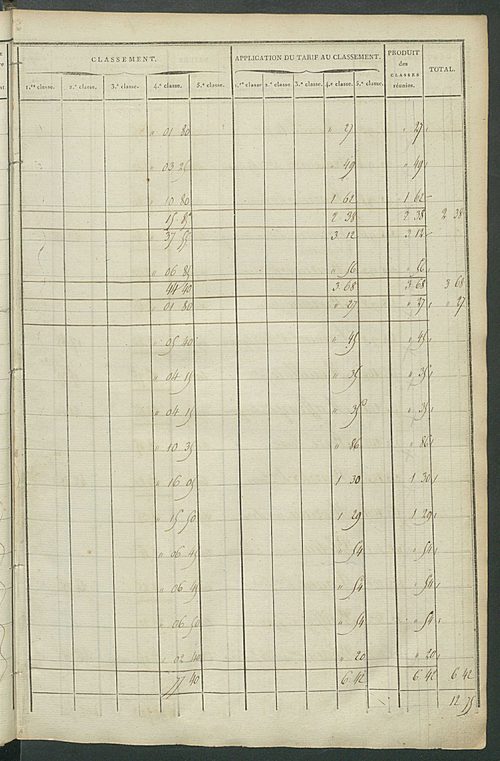 CLASSEMENT. APPLICATION DU TARIF AU CLASSEMENT. PRODUIT des CLASSES réunies. TOTAL.
1.re classe. 2.e classe. 3.e classe. 4.e classe. 5.e classe. 1.re classe 2.e classe. 3.e classe. 4.e classe. 5.e classe.
" 01 80 " 27 " 27
" 03 25 " 49 " 49
" 10 80 1 62 1 62
15 85 2 38 2 38 2 38
" 37 55 3 12 3 12
" 06 85 " 56 " 56
44 40 3 68 3 68 3 68
" 01 80 " 27 " 27 " 27
" 05 40 " 45 " 45
" 04 15 " 35 " 35
" 04 15 " 35 " 35
" 10 35 " 86 " 86
" 16 05 1 30 1 30
" 15 50 1 29 1 29
" 06 45 " 54 " 54
" 06 45 " 54 " 54
" 06 50 " 54 " 54
" 02 40 " 20 " 20
77 40 6 42 6 42 6 42
12 75